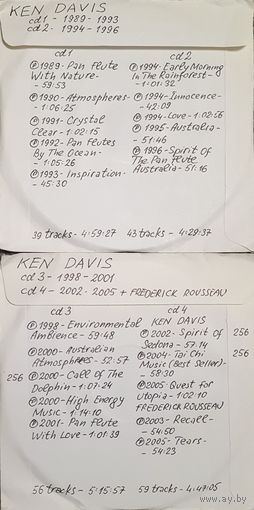 KEN DAVIS
cd1 - 1989-1993
cd2 - 1994-1996
cd1
Ⓟ 1989-Pan Flute
With Nature-
-59:53
Ⓟ 1990-Atmospheres-
-1:06:25
Ⓟ 1991-Crystal
Clear-1:02:15
Ⓟ 1992-Pan Flutes
By The Ocean-
-1:05:26
Ⓟ 1993-Inspiration-
-45:30
39 tracks - 4:59:27
cd2
Ⓟ 1994-Early Morning
In The Rainforest-
-1:01:32
Ⓟ 1994-Innocence-
-42:09
Ⓟ 1994-Love-1:02:56
Ⓟ 1995-Australia-
-51:46
Ⓟ 1996-Spirit Of
The Pan Flute
Australia-51:16
43 tracks - 4:29:37
KEN DAVIS
cd3 - 1998-2001
cd4 - 2002-2005 + FREDERICK ROUSSEAU
cd3
Ⓟ 1998-Environmental
Ambience-59:48
Ⓟ 2000-Australian
Atmosphares-32:57
256 Ⓟ 2000-Call Of The
Dolphin-1:07:24
Ⓟ 2000-High Energy
Music-1:14:10
Ⓟ 2001-Pan Flute
With Love-1:01:39
56 tracks - 5:15:57
cd4
KEN DAVIS
Ⓟ 2002-Spirit of 256
Sedona-57:14
Ⓟ 2004-Tai Chi 256
Music (Best Seller)-
-58:30
Ⓟ 2005-Quest for
Utopia-1:02:10
FREDERICK ROUSSEAU
Ⓟ 2003-Recall-
-54:50
Ⓟ 2005-Tears-
-54:23
59 tracks - 4:47:05
ay.by